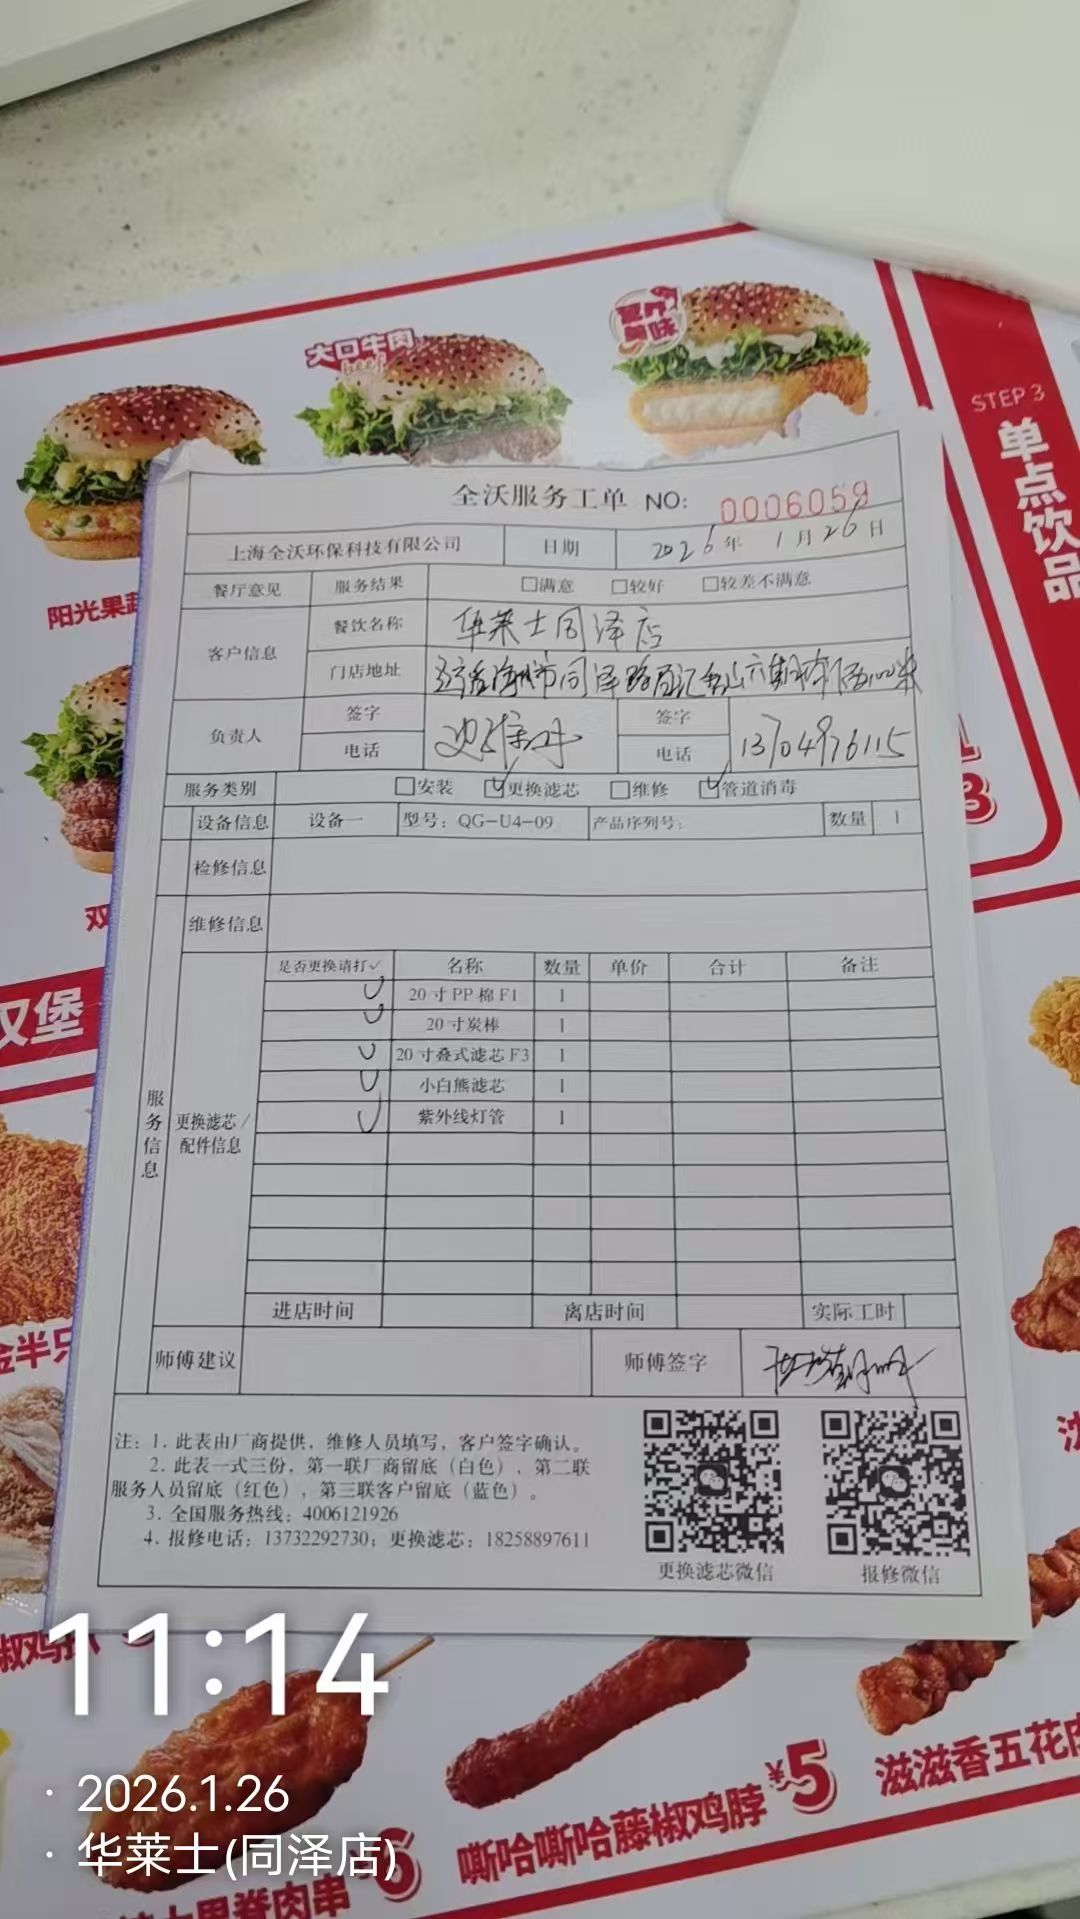 大口牛肉
beef
STEP 3
单点饮品
阳光果蔬
全沃服务工单 NO: 0006059
上海全沃环保科技有限公司 日期 2026年 1月26日
餐厅意见 服务结果 □满意 □较好 □较差不满意
客户信息 餐饮名称 华莱士同泽店
门店地址
负责人 签字 签字
电话 电话 13704976115
服务类别 □安装 ☑更换滤芯 □维修 ☑管道消毒
设备信息 设备一 型号：QG-U4-09 产品序列号： 数量 1
检修信息
维修信息
服务信息
更换滤芯/配件信息
是否更换请打✓ 名称 数量 单价 合计 备注
✓ 20寸PP棉F1 1
✓ 20寸炭棒 1
✓ 20寸叠式滤芯F3 1
✓ 小白熊滤芯 1
✓ 紫外线灯管 1
进店时间 离店时间 实际工时
师傅建议 师傅签字
注：1. 此表由厂商提供，维修人员填写，客户签字确认。
2. 此表一式三份，第一联厂商留底（白色），第二联
服务人员留底（红色），第三联客户留底（蓝色）。
3. 全国服务热线：4006121926
4. 报修电话：13732292730；更换滤芯：18258897611
更换滤芯微信 报修微信
双
汉堡
11:14
· 2026.1.26
· 华莱士(同泽店)
嘶哈嘶哈藤椒鸡脖 ¥5
滋滋香五花肉
里脊肉串 6